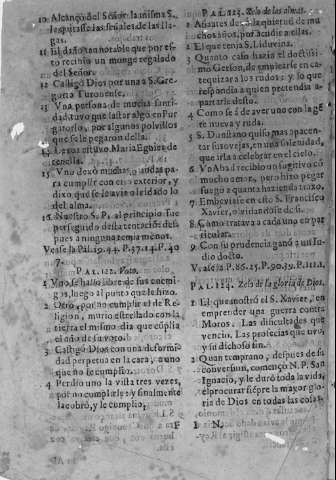 10 Alcançò del Señor la misma S.
le quitasse las señales de las llagas.
11 El daño tan notable que por esto recibio un monge regalado
del Señor.
12 Castigò Dios por una a S. Gregorio
Turonense.
13 Una persona de mucha santidad
tuvo que lastar algo en Purgatorio,
por algunos polvillos
que se le pegaron della.
14
lesa estuvo Maria Egniez de
cencia.
15 Uno dexò muchas
para
cumplir con
exterior, y
dixo que se le avie olvidado lo
del alma.
16 Nuestro S. P. al principio fue
perseguido desta tentacion despues
a ninguna temia menos.
Vease la P.19.44. P.37.14. P.40
7.
PAL. 122. Voto.
1 Uno se hallò libre de sus enemigos,
luego al punto que le hizo.
2 Otro, por no cumplir el de Religion,
murio estrellado con la
tierra el mismo dia que cũplia
el año de su voto.
3 Castigò Dios con una deformidad
perpetua en la cara, a uno
que no se cumplio.
4 Perdio uno la vista tres vezes,
por no cumplirle: y finalmente
la cobrò, y le cumplio.
PAL. 123. Zelo de las almas.
1
la quietud de muchos
años, por acudir a ellas.
2 El que tenia S. Liduvina.
3 Quanto caso hazia el doctissimo
Gerson, de emplearse en catequizar
a los rudos: y lo que
respondia a quien pretendia apartarle
desto.
4 Como se à de aver uno con la gente
nueva y ruda.
5 S. Dunstano quiso mas apacentar
sus ovejas, en una solenidad,
que irla a celebrar en el cielo.
6 Un Abad recibio un fugitivo cõ
mucho
pero hizo pegar
fuego a quanta hazienda traxo.
7 Embeviase en esto S. Francisco
Xavier, olvidandose de si.
8 Como tratava a cada uno en particular.
9 Con su prudencia ganò a un Judio
docto.
Vease la P.86.25. P.90.39. P.111.1.
PAL. 124. Zelo de la gloria de Dios.
1 El que mostrò el S. Xavier, en
emprender una guerra contra
Moros. Las dificultades que
vencio. Las profecias que tuvo,
y su dichoso fin.
2 Quan temprano, despues de su
conversion, començò N. P. San
Ignacio, y le durò toda la vida,
el procurar siẽpre la mayor gloria
de Dios en todas las cosas.
F I N.